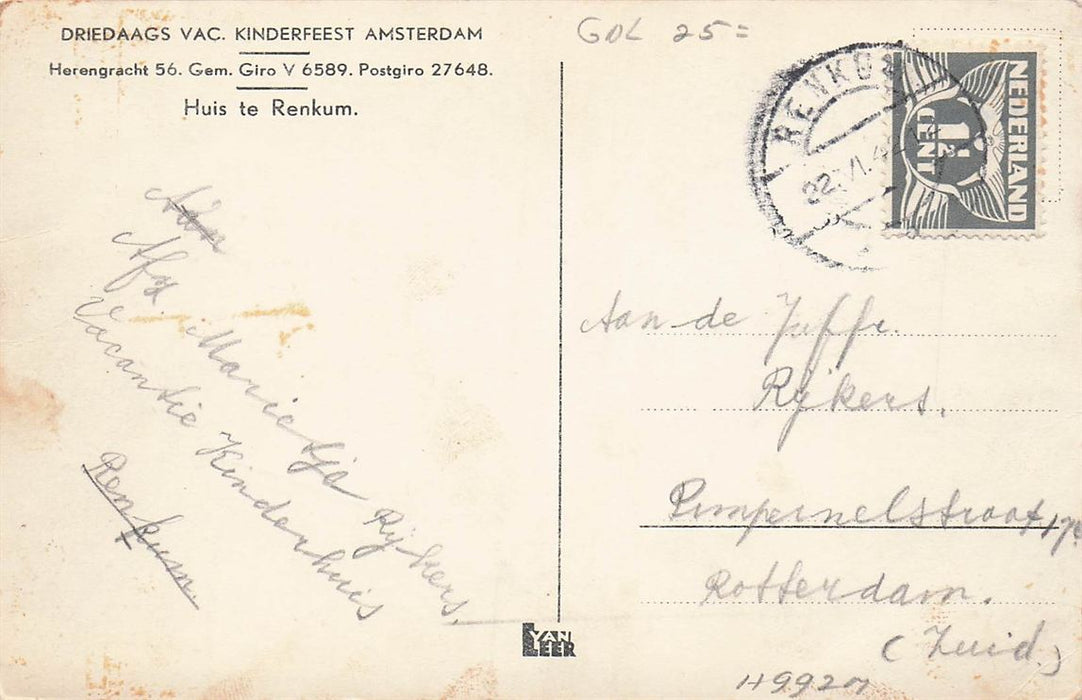 DRIEDAAGS VAC. KINDERFEEST AMSTERDAM
Herengracht 56. Gem. Giro V 6589. Postgiro 27648.
Huis te Renkum.
GDL 25=
RENKUM
22.VI.4
NEDERLAND
1½
CENT
Aan
Afz
Marietje Rijkers.
Vacantie Kinderhuis
Renkum.
Aan de Juffr.
Rijkers.
Pimpernelstraat
Rotterdam.
(Zuid.)
VAN
LEER
H9927